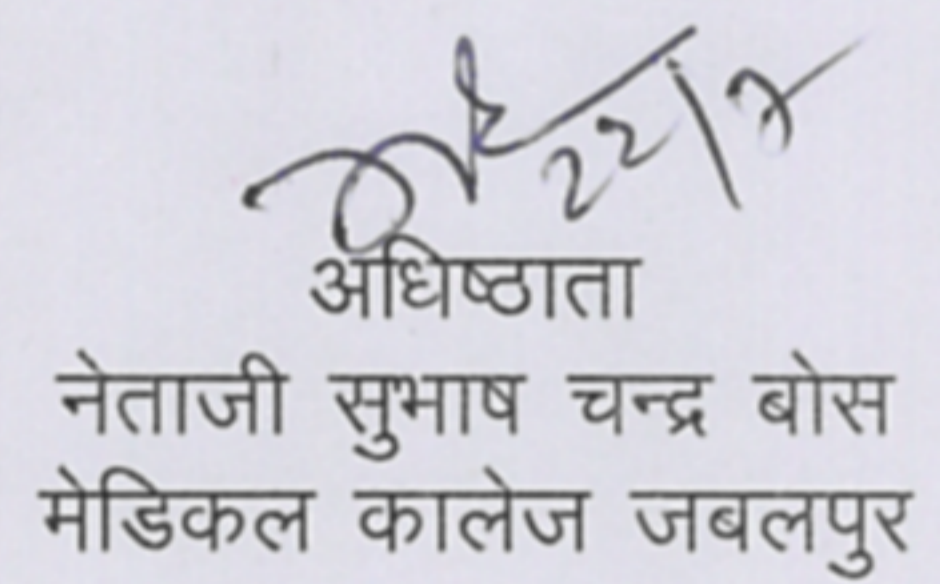 22/7
अधिष्ठाता
नेताजी सुभाष चन्द्र बोस
मेडिकल कालेज जबलपुर